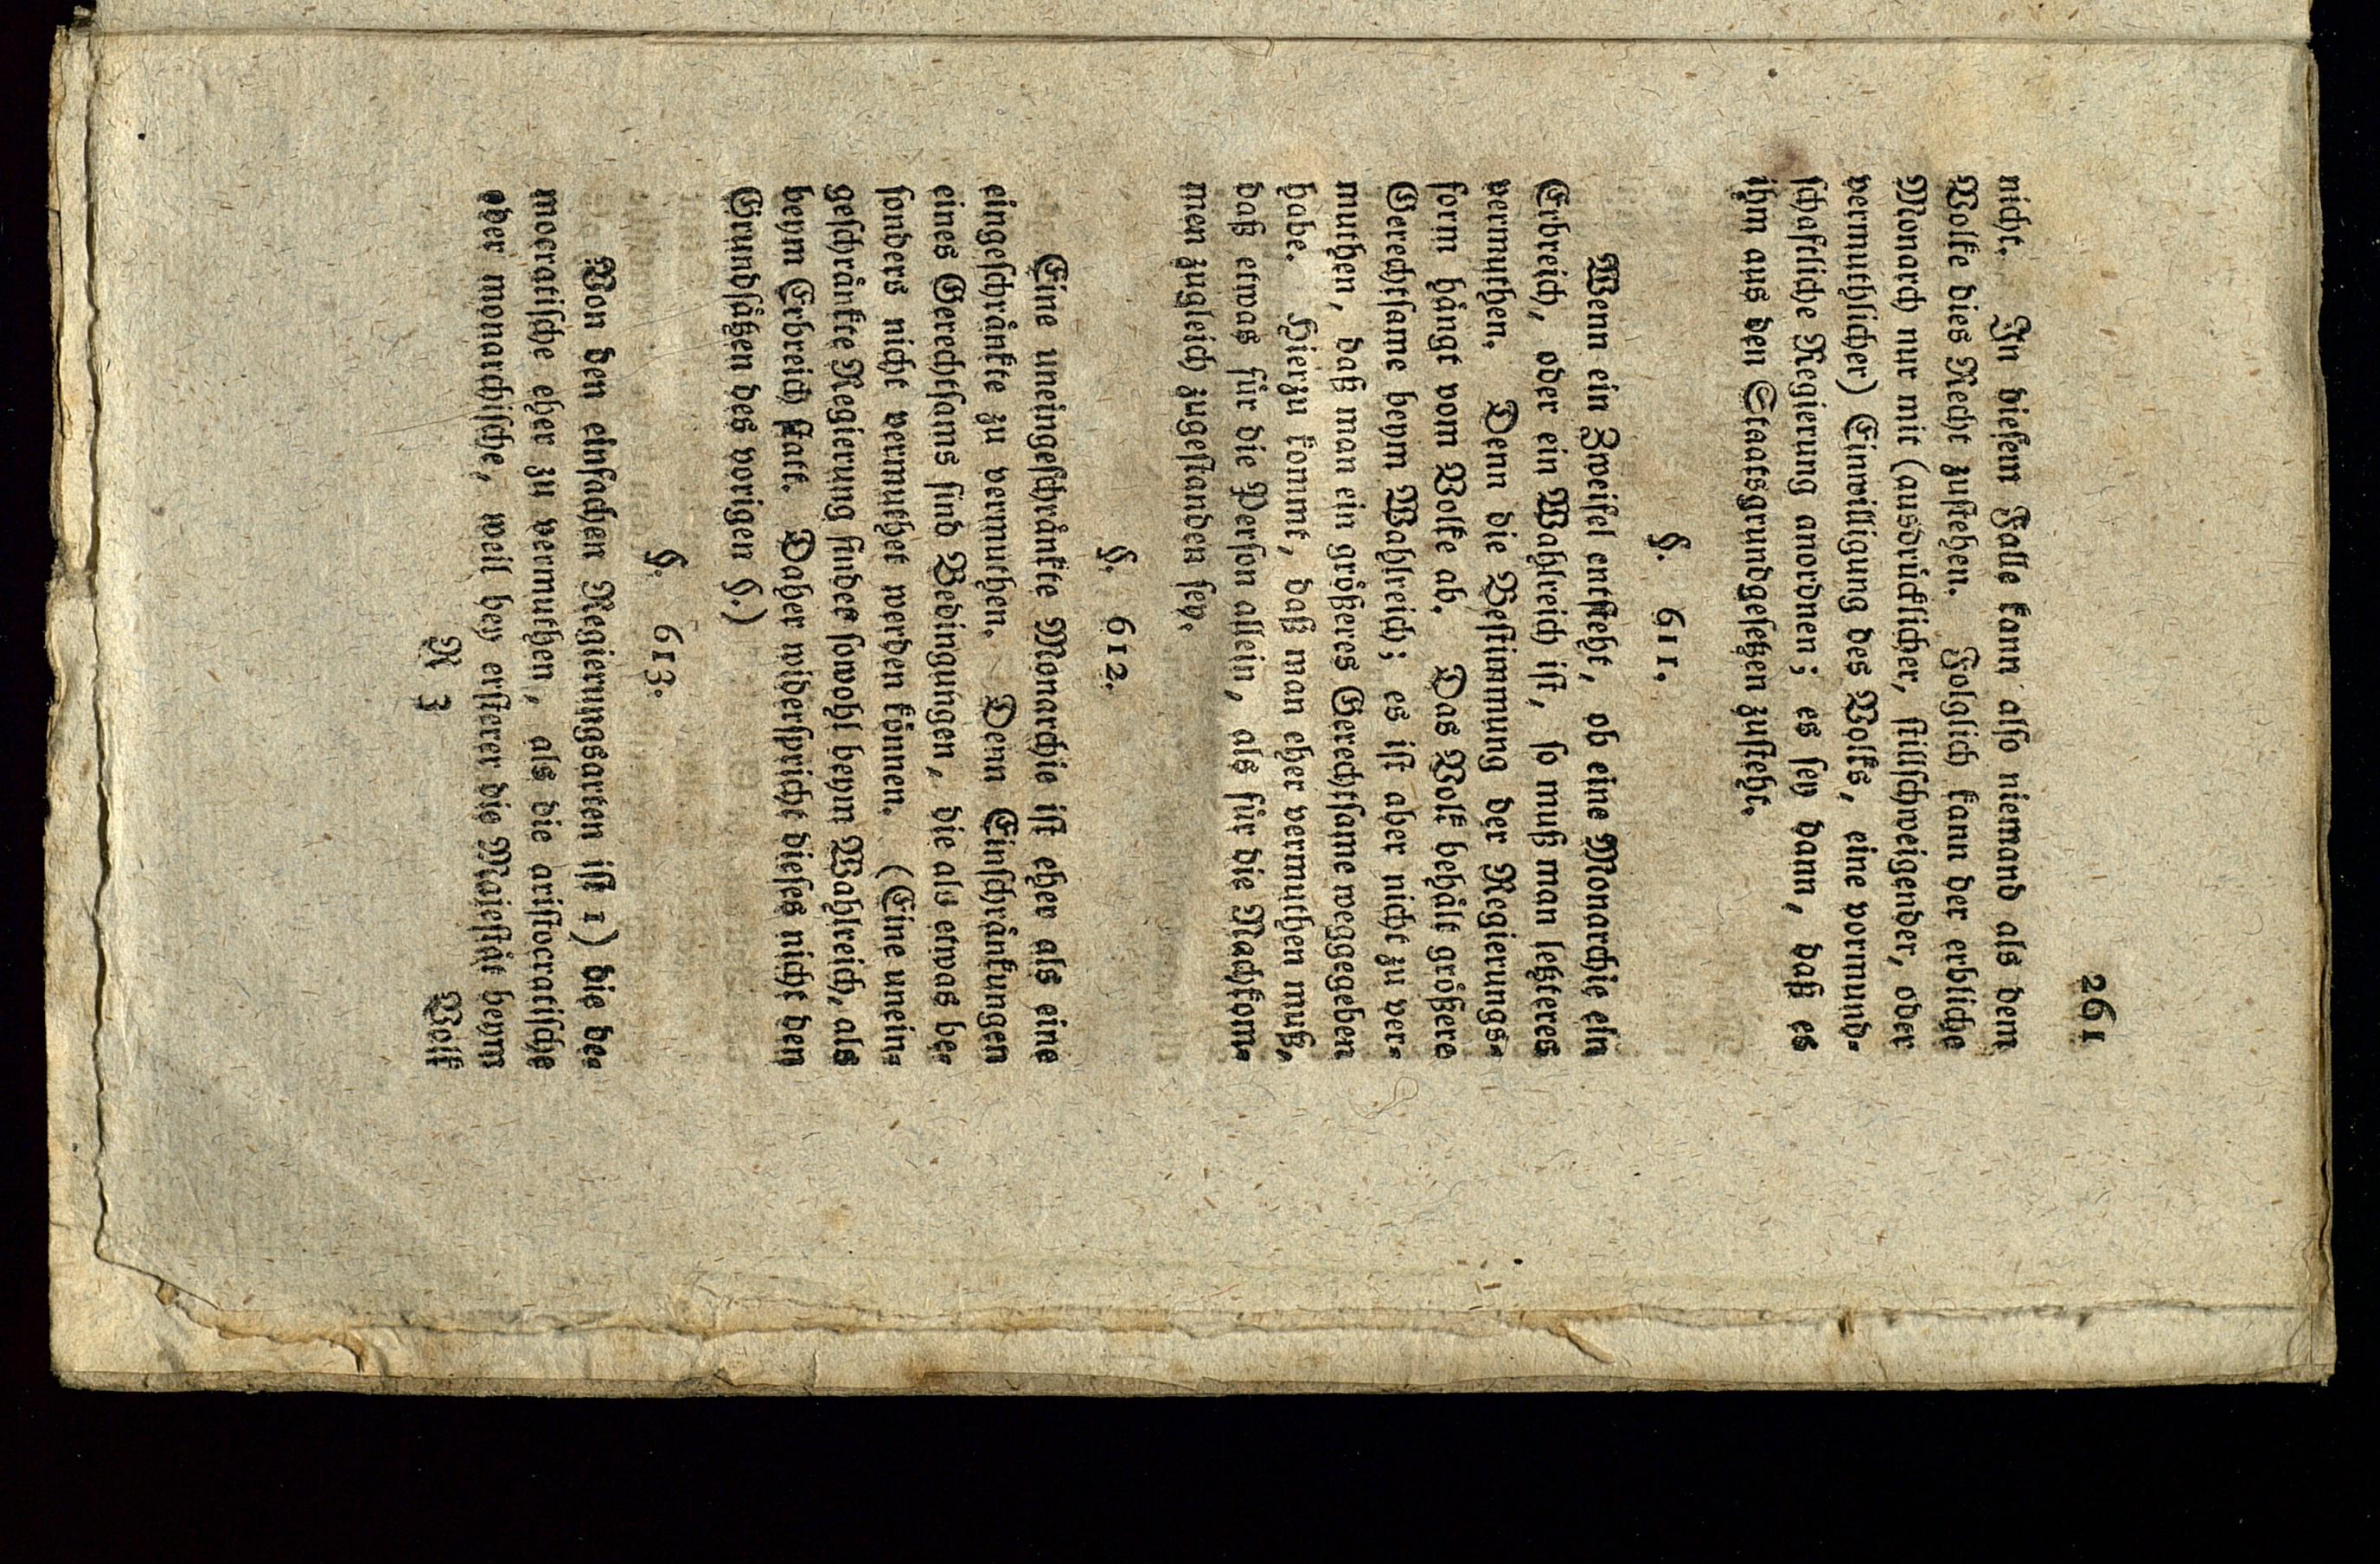 261
nicht. In diesem Falle kann also niemand als dem
Volke dies Recht zustehen. Folglich kann der erbliche
Monarch nur mit (ausdrücklicher, stillschweigender, oder
vermuthlicher) Einwilligung des Volks, eine vormund-
schaftliche Regierung anordnen; es sey dann, daß es
ihm aus den Staatsgrundgesetzen zusteht.
§. 611.
Wenn ein Zweifel entsteht, ob eine Monarchie ein
Erbreich, oder ein Wahlreich ist, so muß man letzteres
vermuthen. Denn die Bestimmung der Regierungs-
form hängt vom Volke ab. Das Volk behält größere
Gerechtsame beym Wahlreich; es ist aber nicht zu ver-
muthen, daß man ein größeres Gerechtsame weggegeben
habe. Hierzu kommt, daß man eher vermuthen muß,
daß etwas für die Person allein, als für die Nachkom-
men zugleich zugestanden sey.
§. 612.
Eine uneingeschränkte Monarchie ist eher als eine
eingeschränkte zu vermuthen. Denn Einschränkungen
eines Gerechtsams sind Bedingungen, die als etwas be-
sonders nicht vermuthet werden können. (Eine unein-
geschränkte Regierung findet sowohl beym Wahlreich, als
beym Erbreich statt. Daher widerspricht dieses nicht den
Grundsätzen des vorigen §.)
§. 613.
Von den einfachen Regierungsarten ist 1) die de-
mocratische eher zu vermuthen, als die aristocratische
oder monarchische, weil bey ersterer die Majestät beym
R 3
Volk